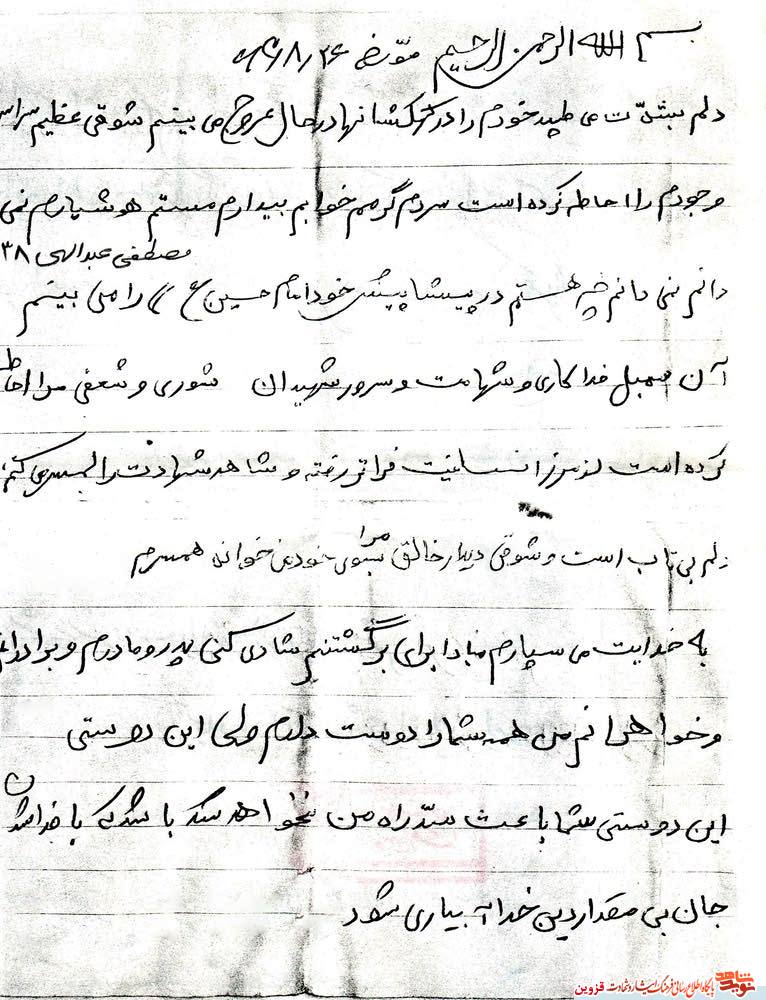 بسم الله الرحمن الرحیم مورخه ۶۴/۸/۲۶
دلم بشدّت می طپد خودم را در کهکشانها در حال عروج می بینم شوقی عظیم سراسر
وجودم را احاطه کرده است سردم گرمم خوابم بیدارم مستم هوشیارم نمی
مصطفی عبدالهی ۳۸
دانم نمی دانم چه هستم در پیشاپیش خود امام حسین (ع) را می بینم
آن سمبل فداکاری و شهامت و سرور شهیدان شوری و شعفی مرا احاطه
کرده است از مرز انسانیت فراتر رفته و شاهد شهادت را لمس می کنم
دلم بی تاب است و شوق دیدار خالق مرا بسوی خود می خواند همسرم
به خدایت می سپارم مبادا برای برگشتنم شادی کنی پدر و مادرم و برادرانم
و خواهرانم من همه شما را دوست دارم ولی این دوستی
این دوستی شما باعث سدّ راه من نخواهد شد باشد که با فدا شدن
جان بی مقدار دین خدا آبیاری شود
نوید شاهد
پایگاه اطلاع رسانی فرهنگ ایثار و شهادت قزوین